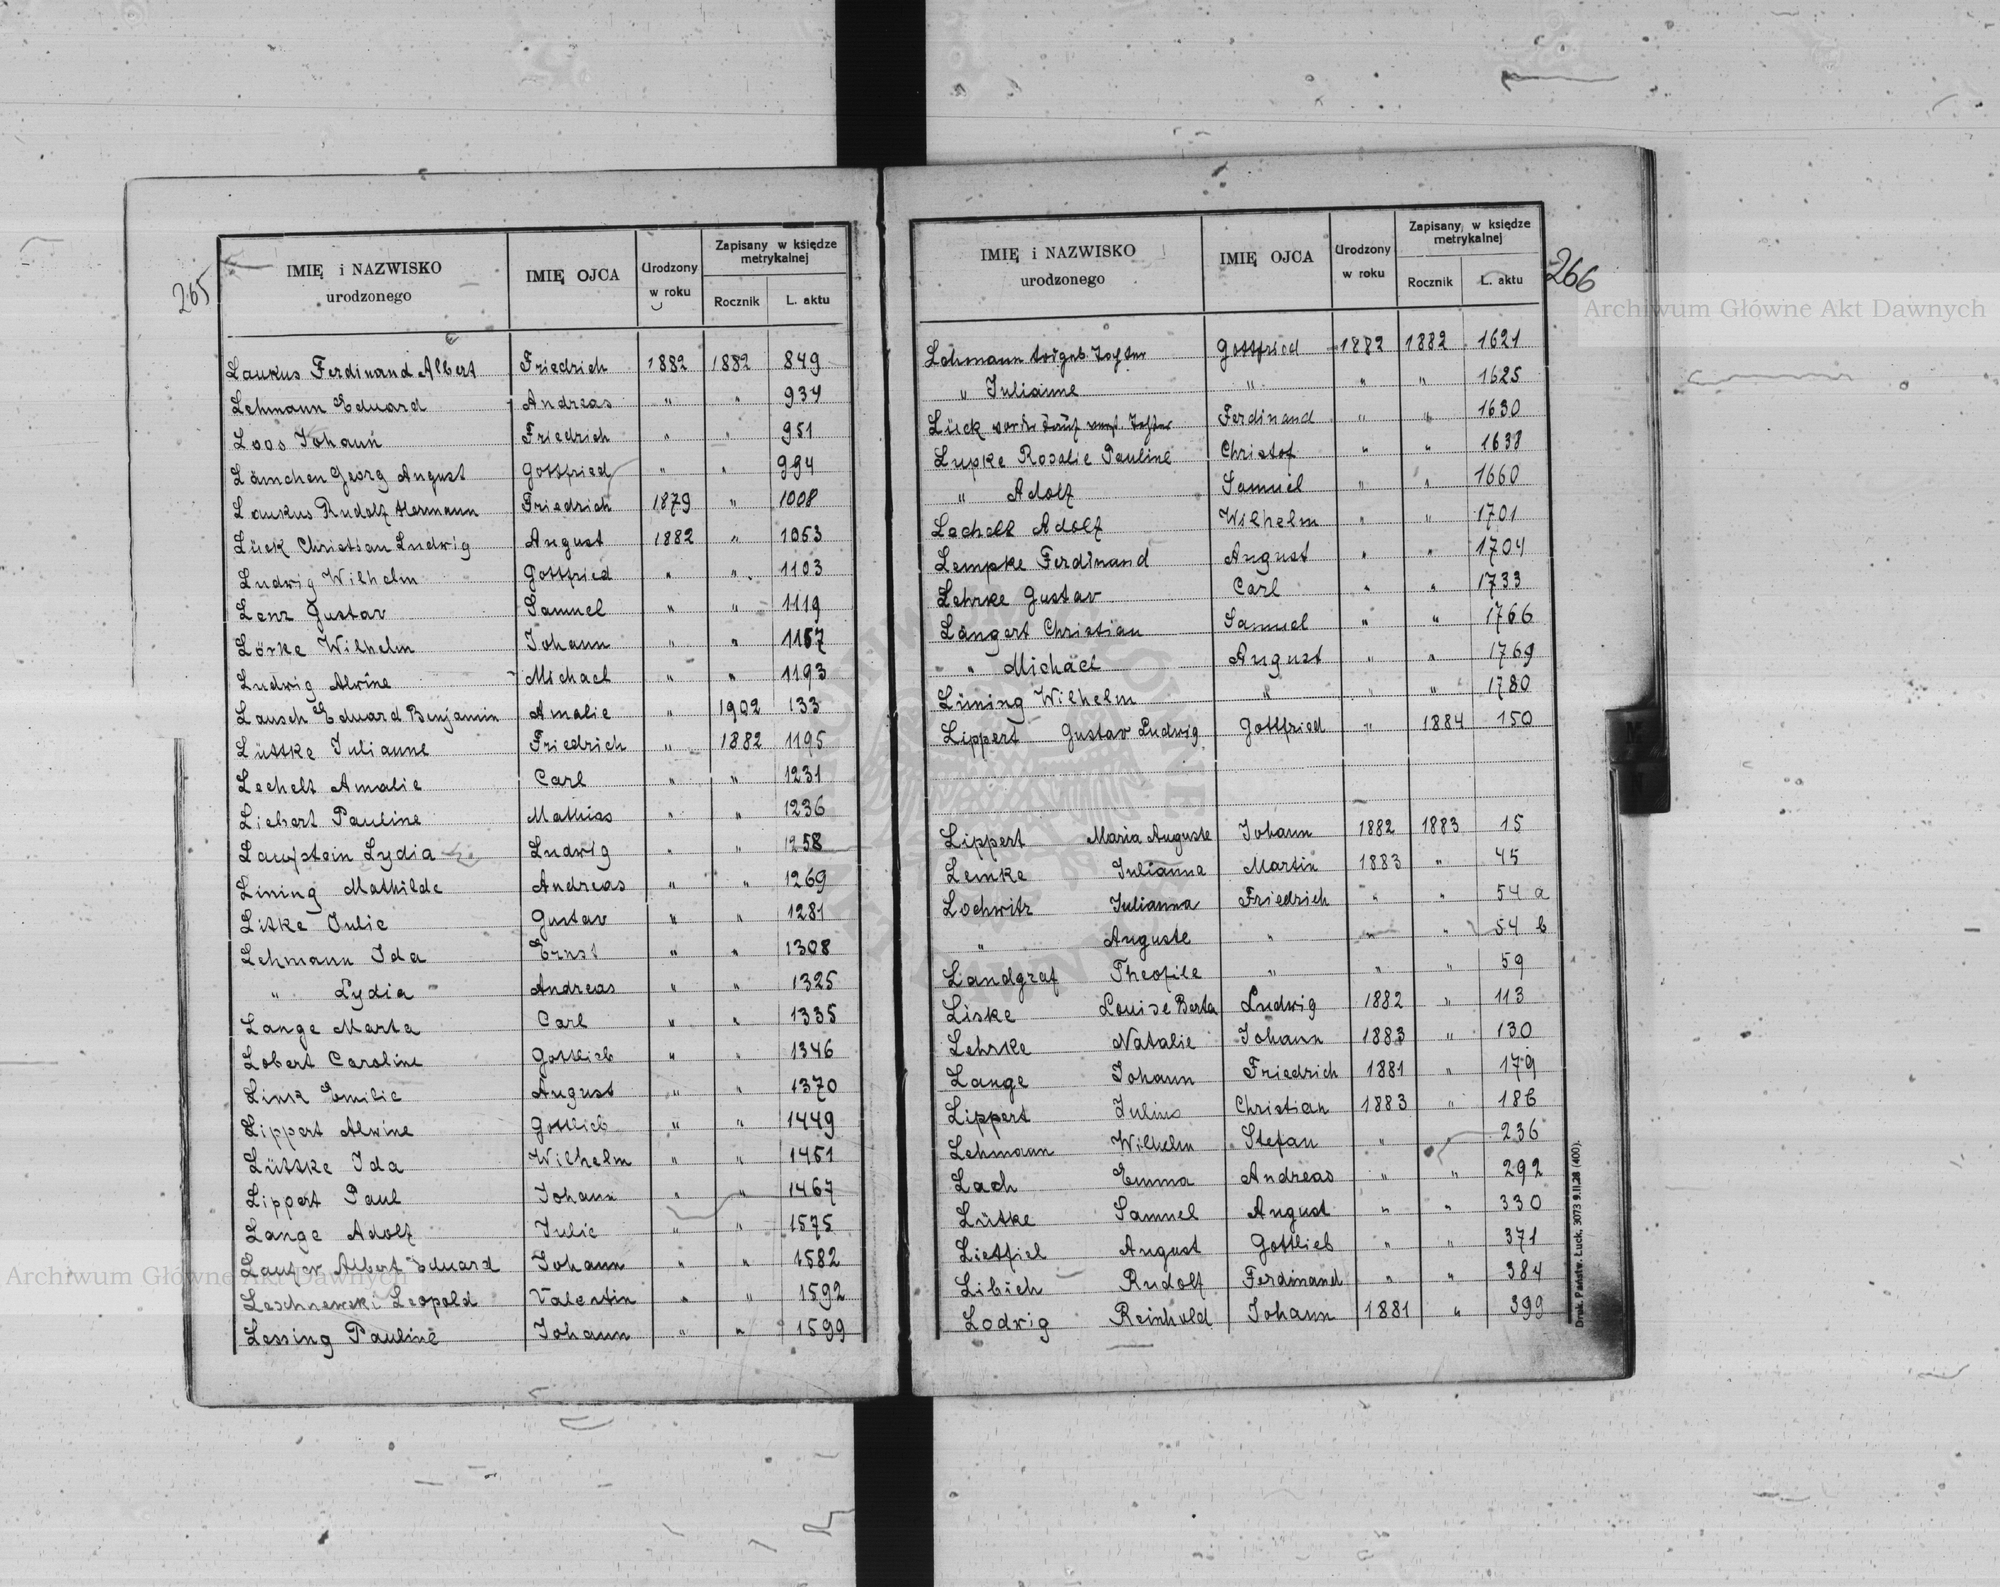 265
IMIĘ i NAZWISKO urodzonego | IMIĘ OJCA | Urodzony w roku | Zapisany w księdze metrykalnej
Rocznik | L. aktu
Laukus Ferdinand Albert | Friedrich | 1882 | 1882 | 849
Lehmann Eduard | Andreas | " | " | 934
Loos Johann | Friedrich | " | " | 951
Lämchen Georg August | Gottfried | " | " | 994
Laukus Rudolf Hermann | Friedrich | 1879 | " | 1008
Lück Christian Ludwig | August | 1882 | " | 1053
Ludwig Wilhelm | Gottfried | " | " | 1103
Lenz Gustav | Samuel | " | " | 1119
Lörke Wilhelm | Johann | " | " | 1157
Ludwig Alwine | Michael | " | " | 1193
Lausch Eduard Benjamin | Amalie | " | 1902 | 133
Lüttke Julianne | Friedrich | " | 1882 | 1195
Lechelt Amalie | Carl | " | " | 1231
Liebert Pauline | Mathias | " | " | 1236
Lydia | Ludwig | " | " | 1258
Lining Mathilde | Andreas | " | " | 1269
Litke Julie | Gustav | " | " | 1281
Lehmann Ida | Ernst | " | " | 1308
" Lydia | Andreas | " | " | 1325
Lange Marta | Carl | " | " | 1335
Lobert Caroline | Gottlieb | " | " | 1346
Link Emilie | August | " | " | 1370
Lippert Alwine | Gottlieb | " | " | 1449
Lüttke Ida | Wilhelm | " | " | 1451
Lippert Paul | Johann | " | " | 1467
Lange Adolf | Julie | " | " | 1575
Laufer Albert Eduard | Johann | " | " | 1582
Leschnewski Leopold | Valentin | " | " | 1592
Lessing Pauline | Johann | " | " | 1599
266
IMIĘ i NAZWISKO urodzonego | IMIĘ OJCA | Urodzony w roku | Zapisany w księdze metrykalnej
Rocznik | L. aktu
Lehmann totgeb. Tochter | Gottfried | 1882 | 1882 | 1621
" Julianne | " | " | " | 1625
Lück | Ferdinand | " | " | 1630
Lupke Rosalie Pauline | Christof | " | " | 1638
" Adolf | Samuel | " | " | 1660
Adolf | Wilhelm | " | " | 1701
Lempke Ferdinand | August | " | " | 1704
Lehrke Gustav | Carl | " | " | 1733
Längert Christian | Samuel | " | " | 1766
" Michael | August | " | " | 1769
Lüning Wilhelm | " | " | " | 1780
Lippert Gustav Ludwig | Gottfried | " | 1884 | 150
Lippert Maria Auguste | Johann | 1882 | 1883 | 15
Lemke Julianna | Martin | 1883 | " | 45
Lochwitz Julianna | Friedrich | " | " | 54 a
" Auguste | " | " | " | 54 b
Landgraf Theofile | " | " | " | 59
Liske Louise Berta | Ludwig | 1882 | " | 113
Lehrke Natalie | Johann | 1883 | " | 130
Lange Johann | Friedrich | 1881 | " | 179
Lippert Julius | Christian | 1883 | " | 186
Lehmann Wilhelm | Stefan | " | " | 236
Lach Emma | Andreas | " | " | 292
Lütke Samuel | August | " | " | 330
Lietfiel August | Gottlieb | " | " | 371
Libich Rudolf | Ferdinand | " | " | 384
Lodwig Reinhold | Johann | 1881 | " | 399
Druk. Państw. Łuck, 3073 9.II.28 (400).
Archiwum Główne Akt Dawnych
Archiwum Główne Akt Dawnych